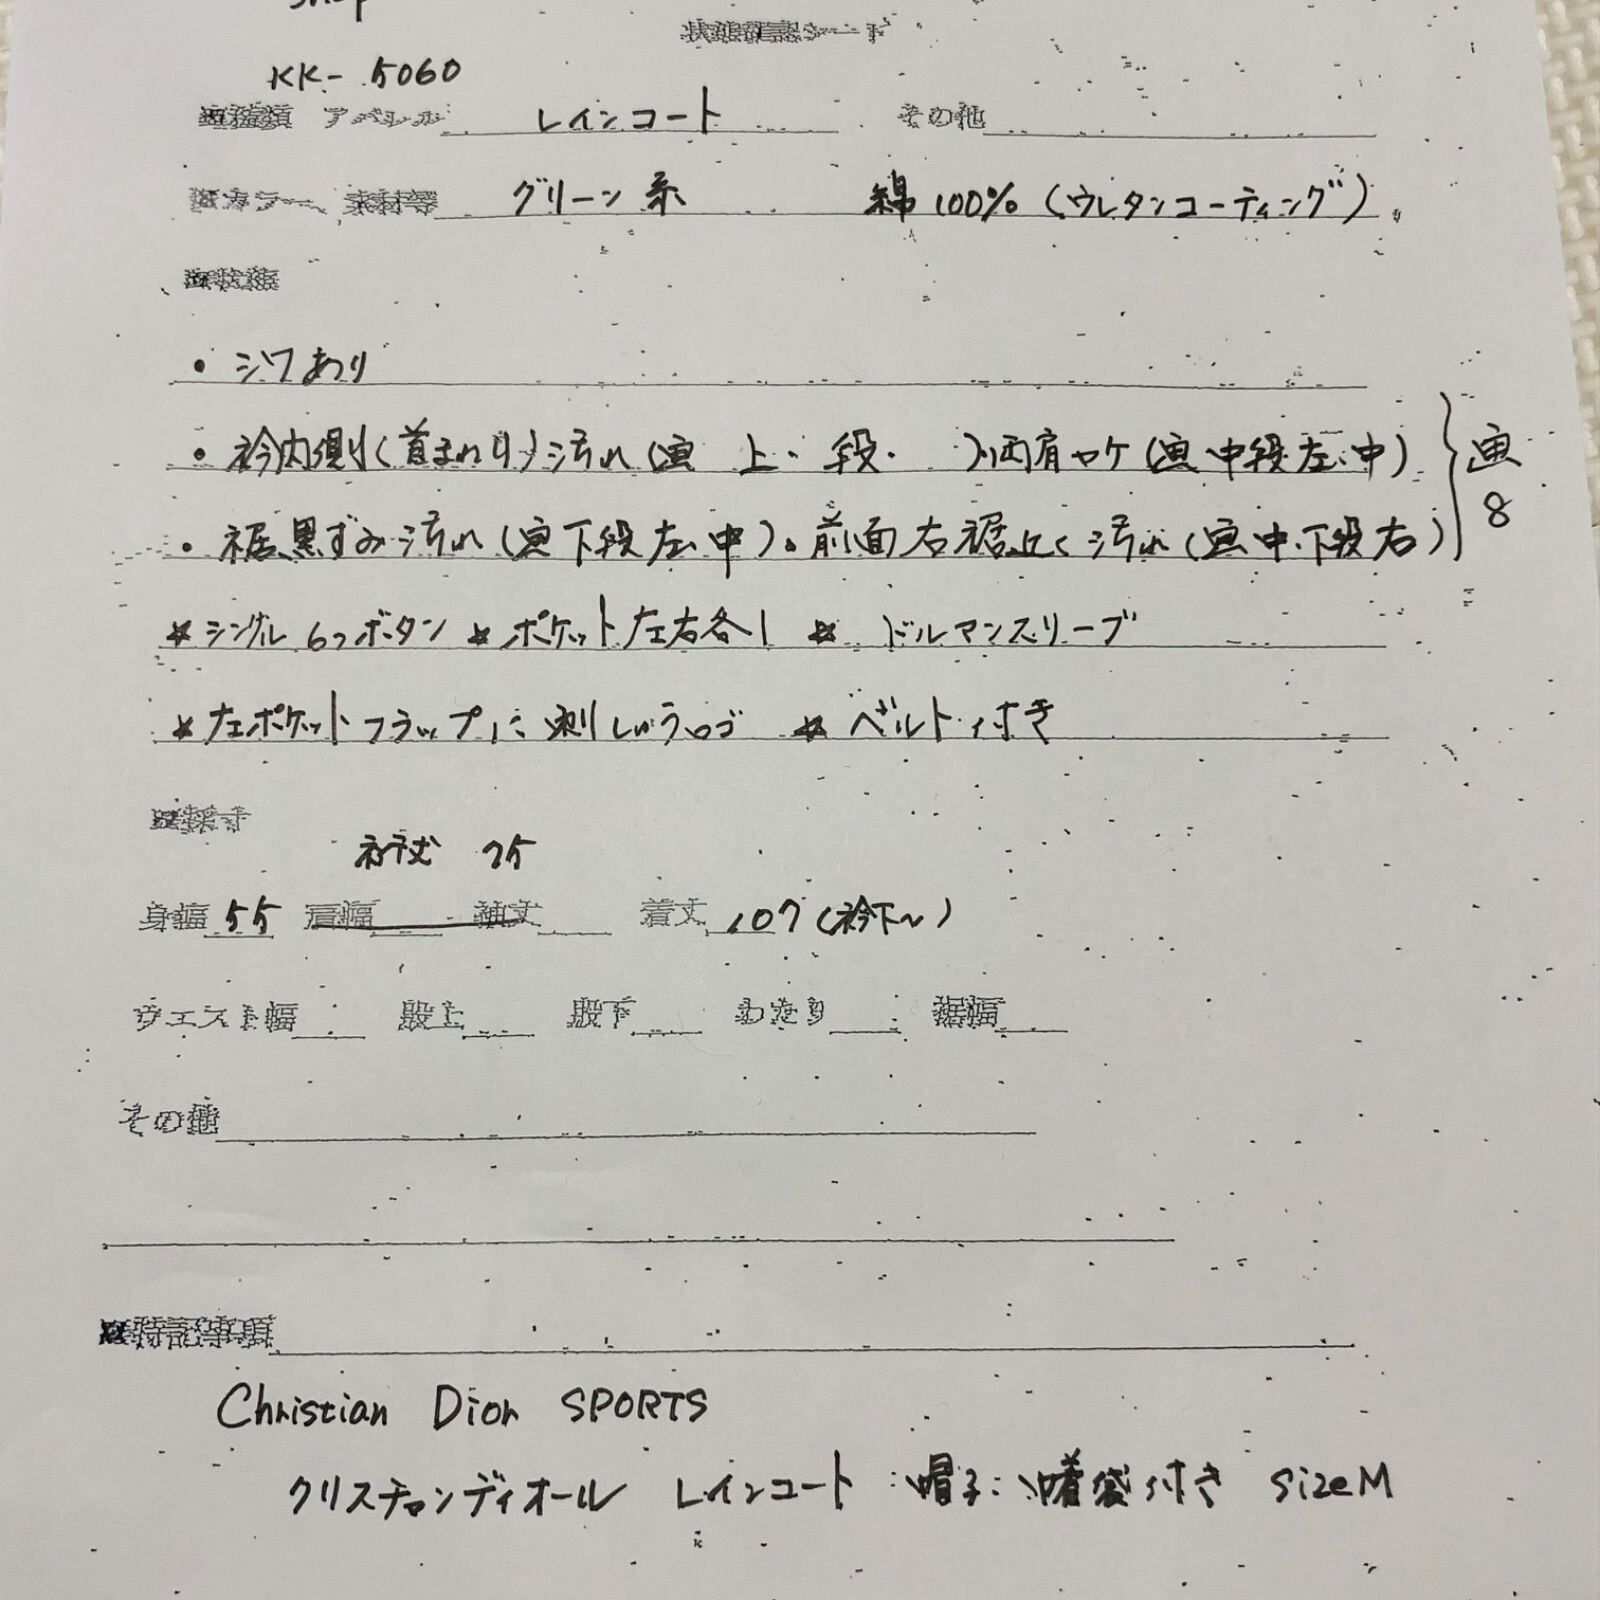 shop
状態確認シート
KK-5060
■種類 アパレル レインコート その他
■カラー、素材等 グリーン系 綿100%(ウレタンコーティング)
■状態
・シワあり
・衿内側(首まわり)汚れ(画 上・段・ )両肩ヤケ(画 中段左・中)
・裾黒ずみ汚れ(画下段左・中)。前面右裾近く汚れ(画中・下段右)
画8
☆シングル6つボタン ☆ポケット左右各1 ☆ドルマンスリーブ
☆左ポケットフラップに刺しゅうロゴ ☆ベルト付き
■採寸
裄丈 75
身幅 55 肩幅 袖丈 着丈 107(衿下~)
ウエスト幅 股上 股下 わたり 裾幅
その他
■特記事項
Christian Dior SPORTS
クリスチャンディオール レインコート 帽子 袋付き sizeM